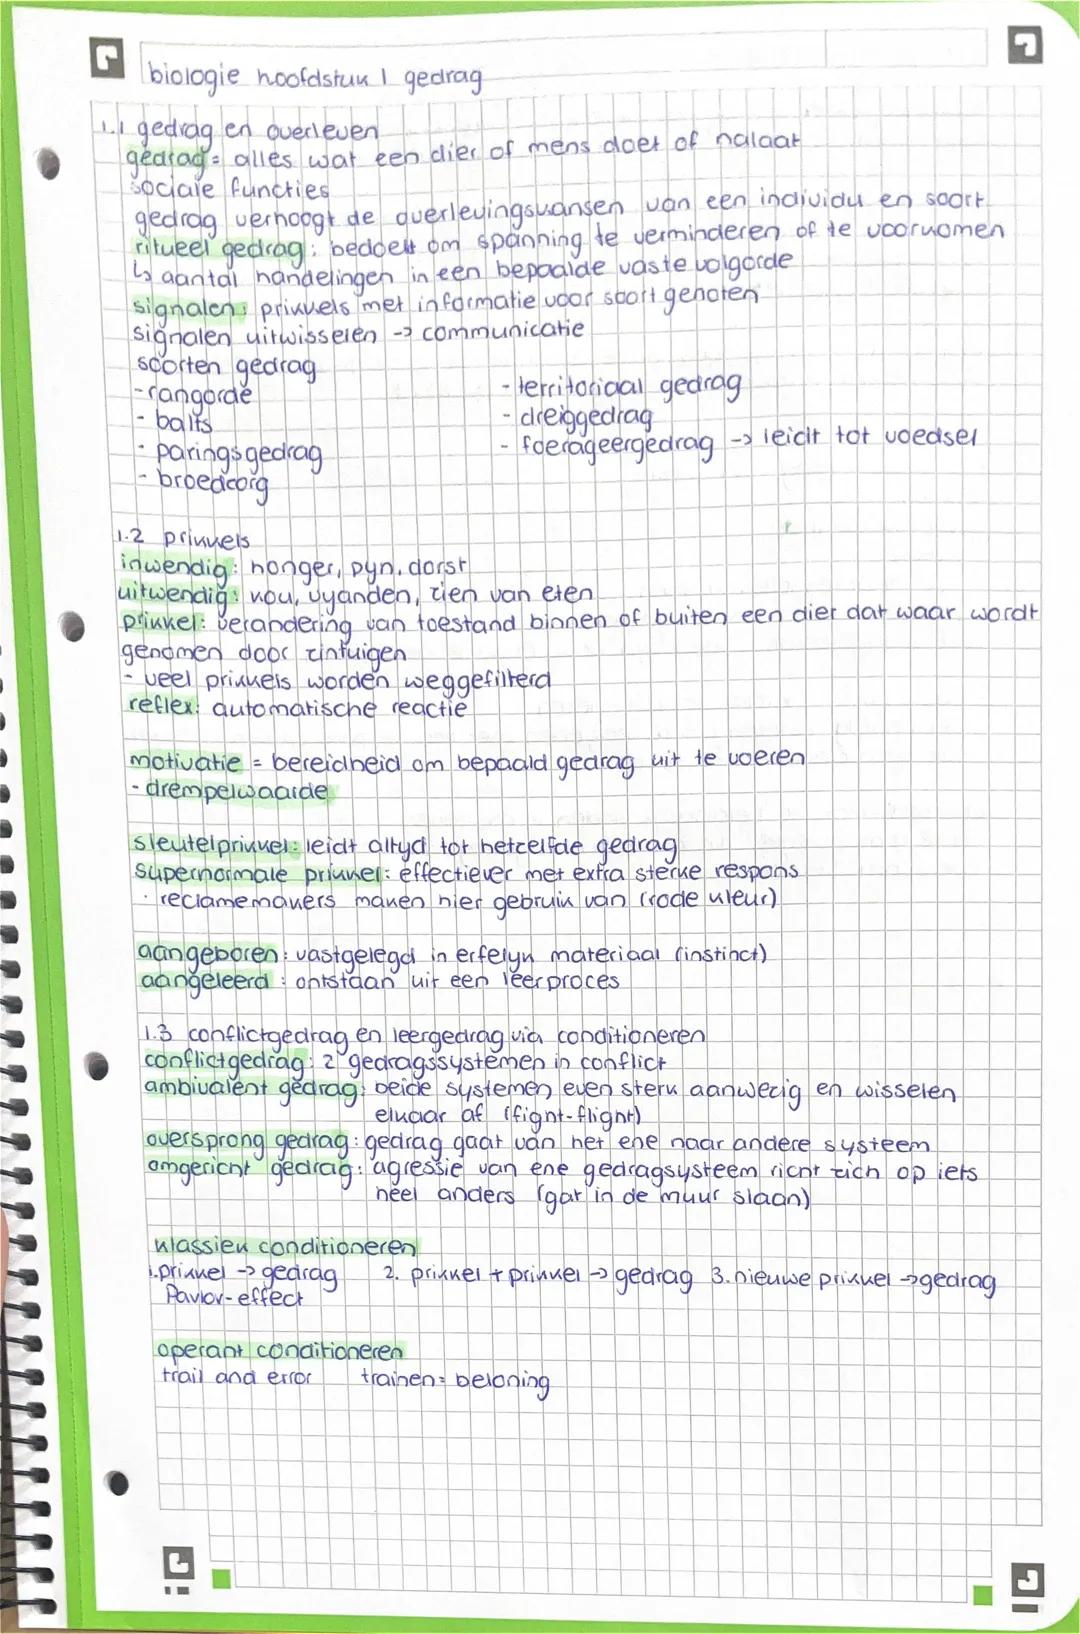 biologie hoofdstuk 1 gedrag
1.1 gedrag en overleven
gedrag = alles wat een dier of mens doet of nalaat
sociale functies
gedrag verhoogt de overlevingskansen van een individu en soort
ritueel gedrag: bedoelt om spanning te verminderen of te voorkomen
↳ aantal handelingen in een bepaalde vaste volgorde
signalen: prikkels met informatie voor soortgenoten
signalen uitwisselen -> communicatie
soorten gedrag
- rangorde
- balts
- paringsgedrag
- broedzorg
- territoriaal gedrag
- dreiggedrag
- foerageergedrag -> leidt tot voedsel
1.2 prikkels
inwendig: honger, pijn, dorst
uitwendig: kou, vijanden, zien van eten
prikkel: verandering van toestand binnen of buiten een dier dat waar wordt
genomen door zintuigen
- veel prikkels worden weggefilterd
reflex: automatische reactie
motivatie = bereidheid om bepaald gedrag uit te voeren
- drempelwaarde
sleutelprikkel: leidt altijd tot hetzelfde gedrag
supernormale prikkel: effectiever met extra sterke respons
· reclamemakers maken hier gebruik van (rode kleur)
aangeboren: vastgelegd in erfelijk materiaal (instinct)
aangeleerd: ontstaan uit een leerproces
1.3 conflictgedrag en leergedrag via conditioneren
conflictgedrag: 2 gedragssystemen in conflict
ambivalent gedrag: beide systemen even sterk aanwezig en wisselen
elkaar af (fight-flight)
oversprong gedrag: gedrag gaat van het ene naar andere systeem
omgericht gedrag: agressie van ene gedragsysteem richt zich op iets
heel anders (gat in de muur slaan)
klassiek conditioneren
1. prikkel -> gedrag 2. prikkel + prikkel -> gedrag 3. nieuwe prikkel -> gedrag
Pavlov-effect
operant conditioneren
trail and error trainen = beloning